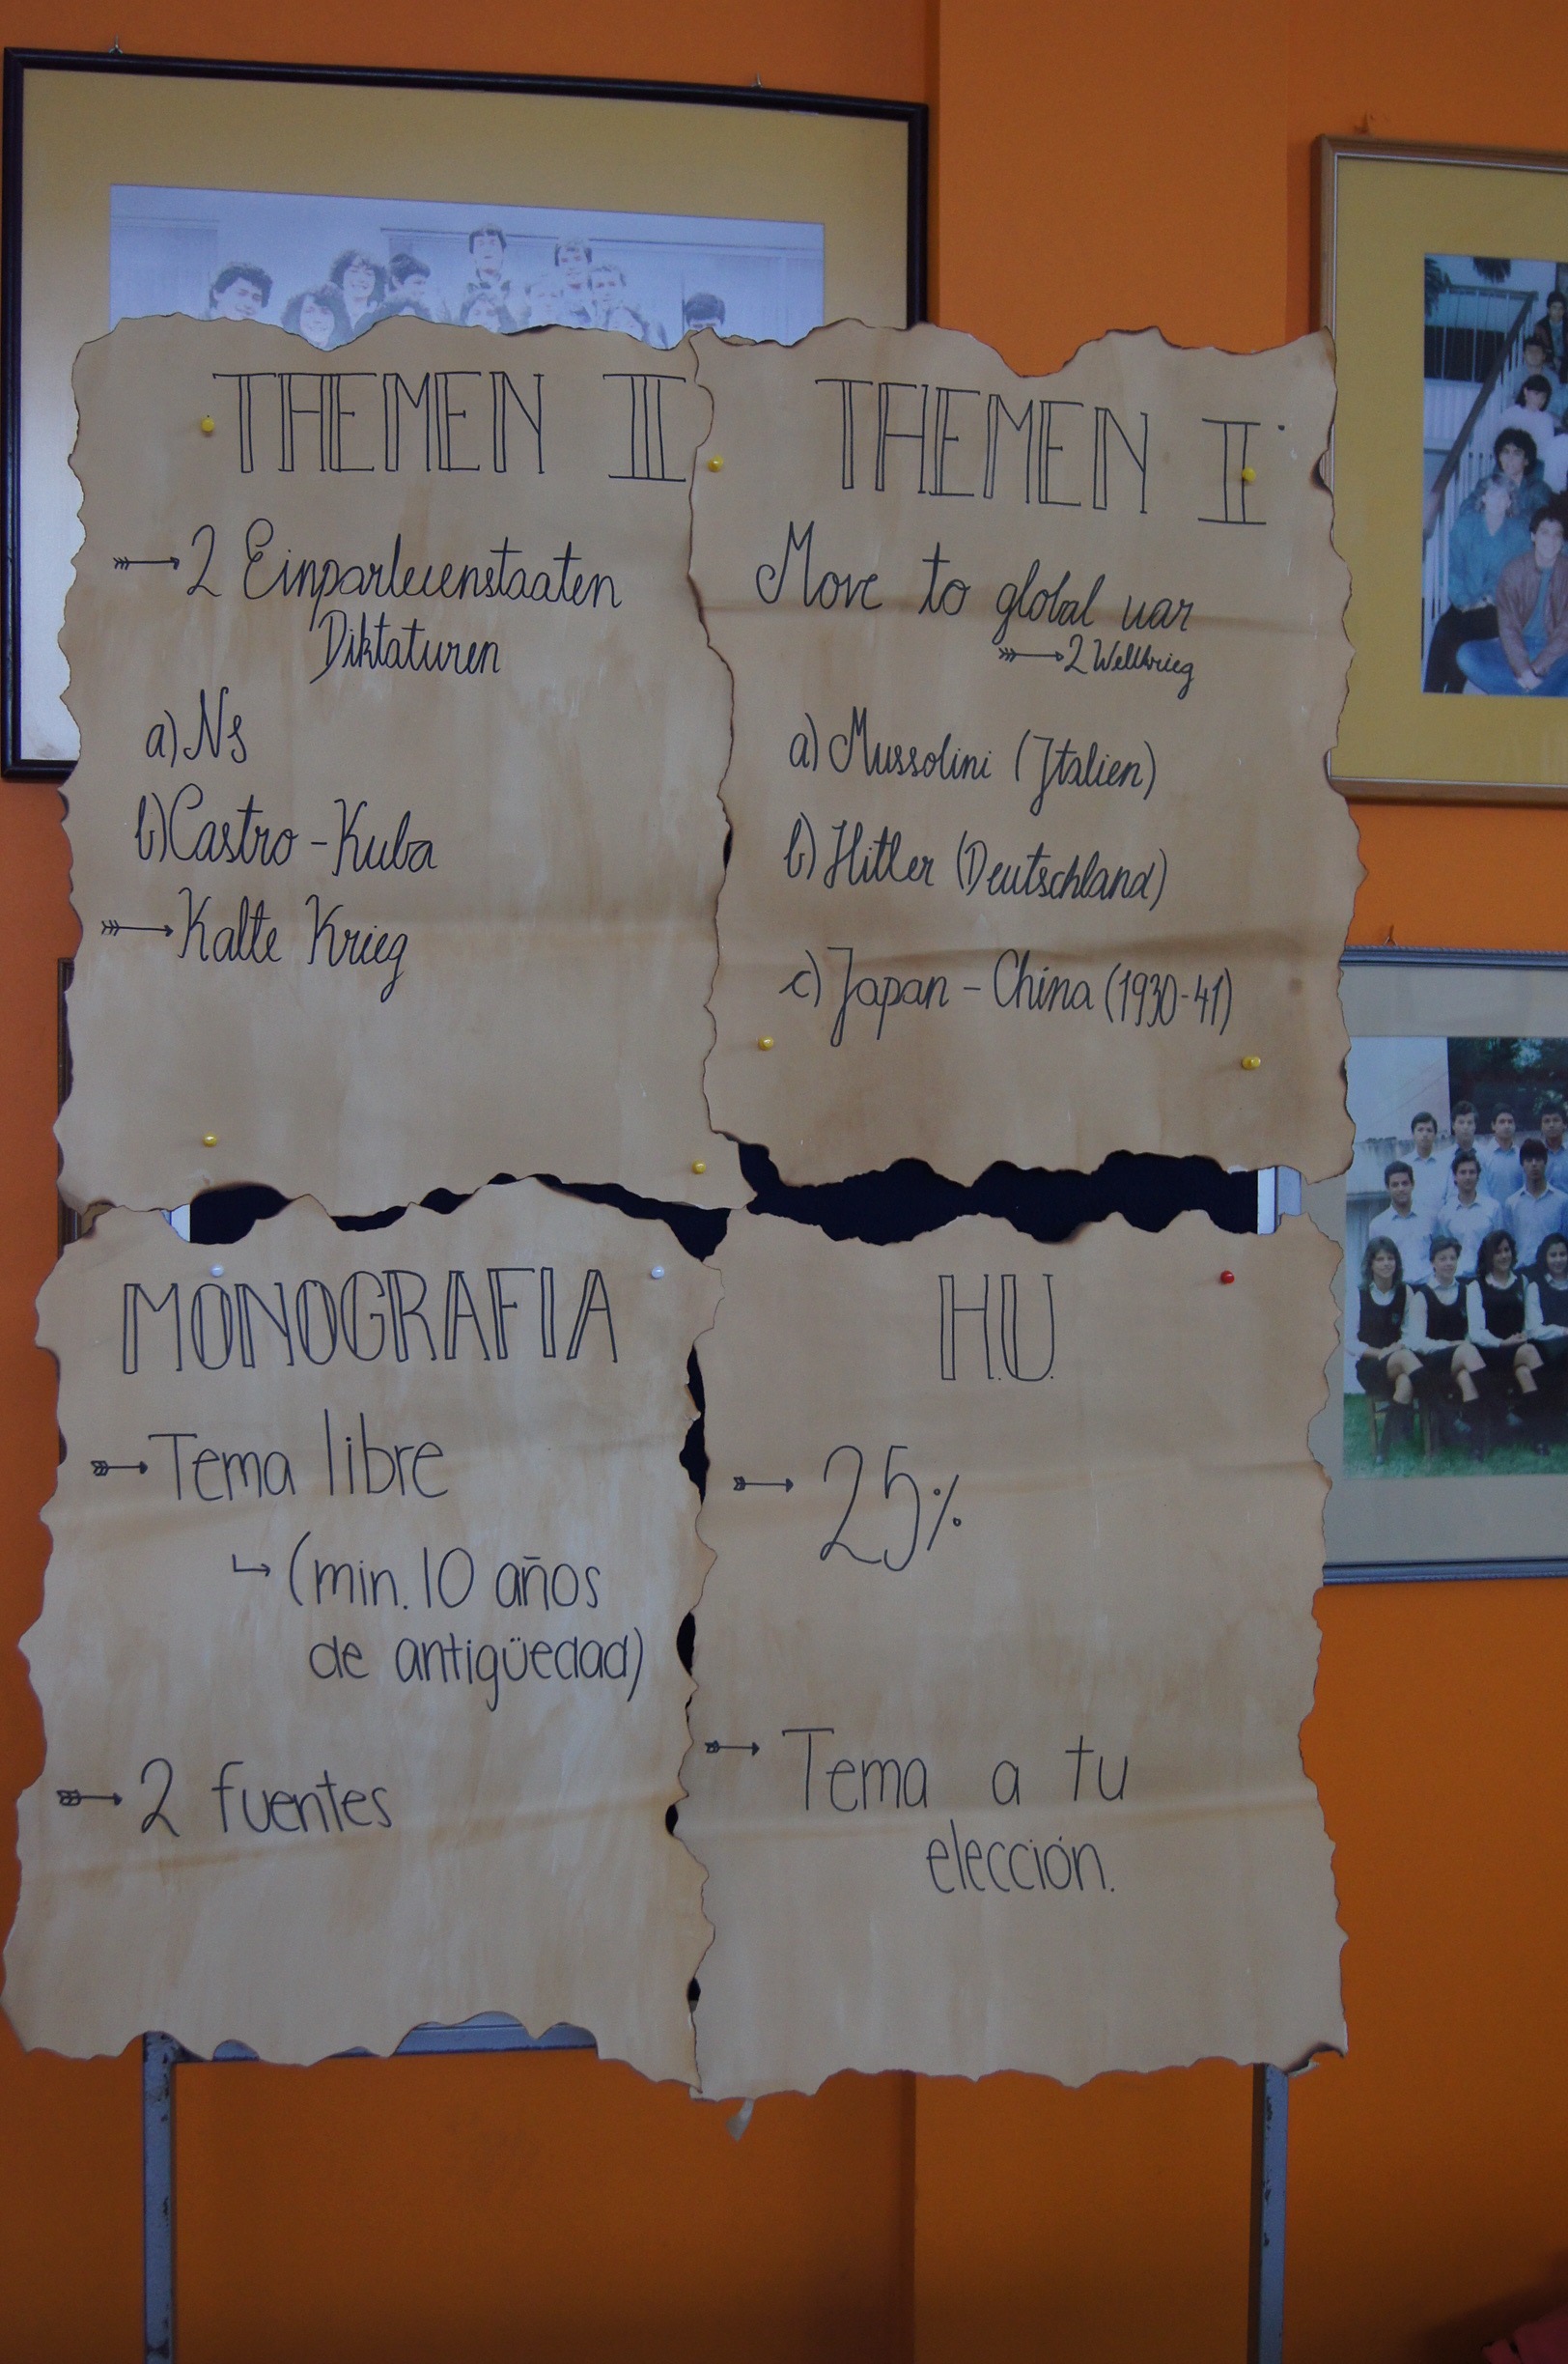 THEMEN III
→ 2 Einparteienstaaten
Diktaturen
a) NS
b) Castro - Kuba
→ Kalte Krieg
THEMEN II
Move to global war
→ 2 Weltkrieg
a) Mussolini (Italien)
b) Hitler (Deutschland)
c) Japan - China (1930-41)
MONOGRAFIA
→ Tema libre
↳ (min. 10 años
de antigüedad)
→ 2 fuentes
H.U.
→ 25%
→ Tema a tu
elección.